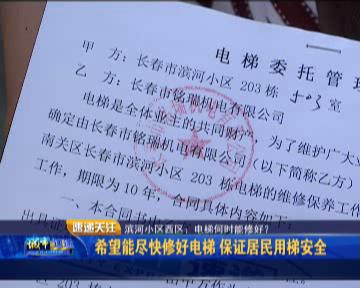 电梯委托管理
甲 方：长春市滨河小区 203 栋 503 室
乙 方：长春市铭瑞机电有限公司
电梯是全体业主的共同财产，为了维护广大业
确定由长春市铭瑞机电有限公司（以下简称乙方）
南关区长春市滨河小区 203 栋电梯的维修保养工作
工作，期限为 10 年，合同具体内容如下：
速递关注
滨河小区西区：电梯何时能修好？
希望能尽快修好电梯 保证居民用梯安全